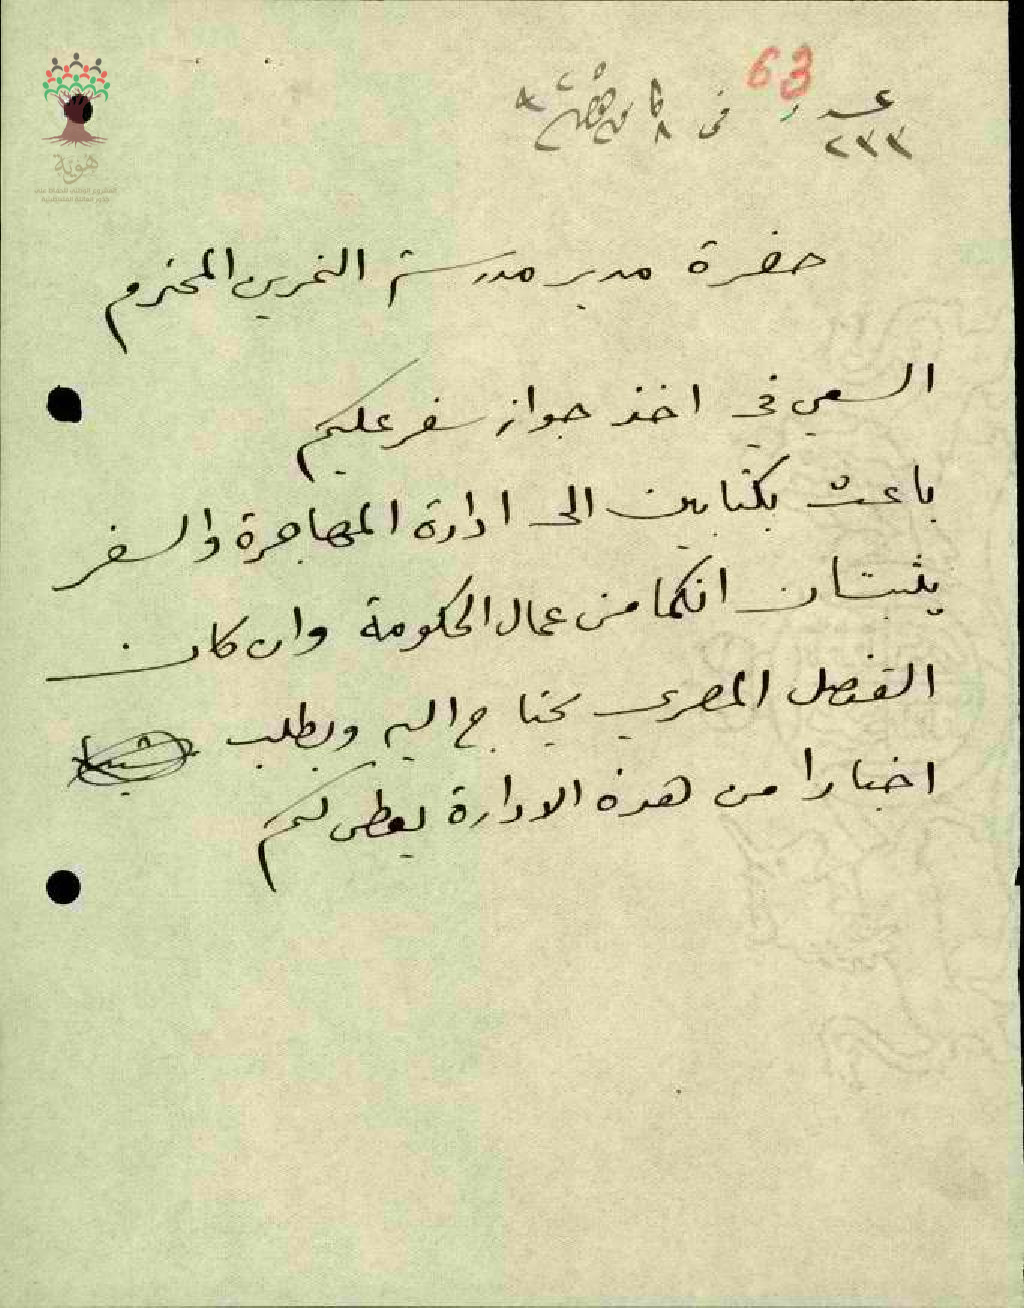 63
عدد
٢٣٣
في ٨
هوية
حضرة مدير مدرسة التمرين المحترم
السعي في اخذ جواز سفر عليكم
باعث بكتابين الى ادارة المهاجرة والسفر
يثبتان انكما من عمال الحكومة وان كان
القنصل المصري يحتاج اليه ويطلب
اخبارا من هذه الادارة يعطى لكم